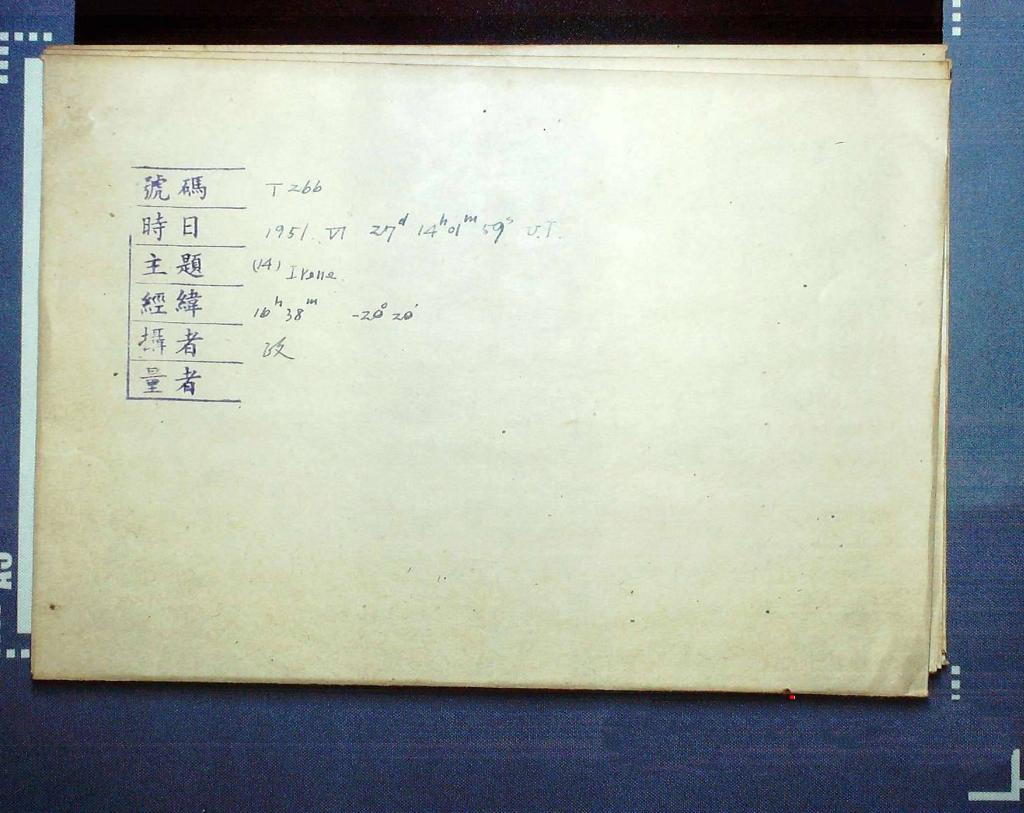 號碼 T266
時日 1951. VI 27ᵈ 14ʰ 01ᵐ 59ˢ U.T.
主題 (14) Irene
經緯 16ʰ 38ᵐ -20° 20′
攝者 政
量者